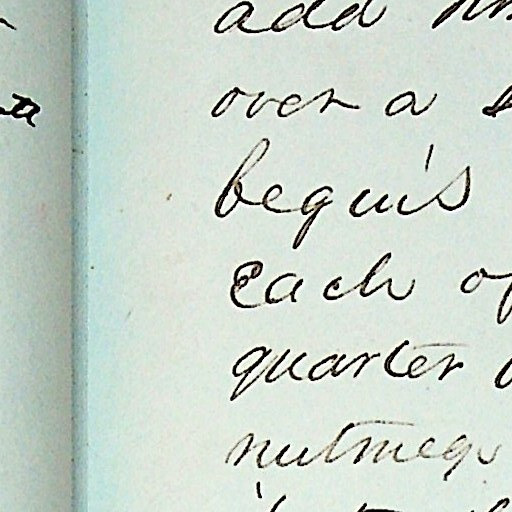 add
over a
begin's
each of
quarter
nutmegs